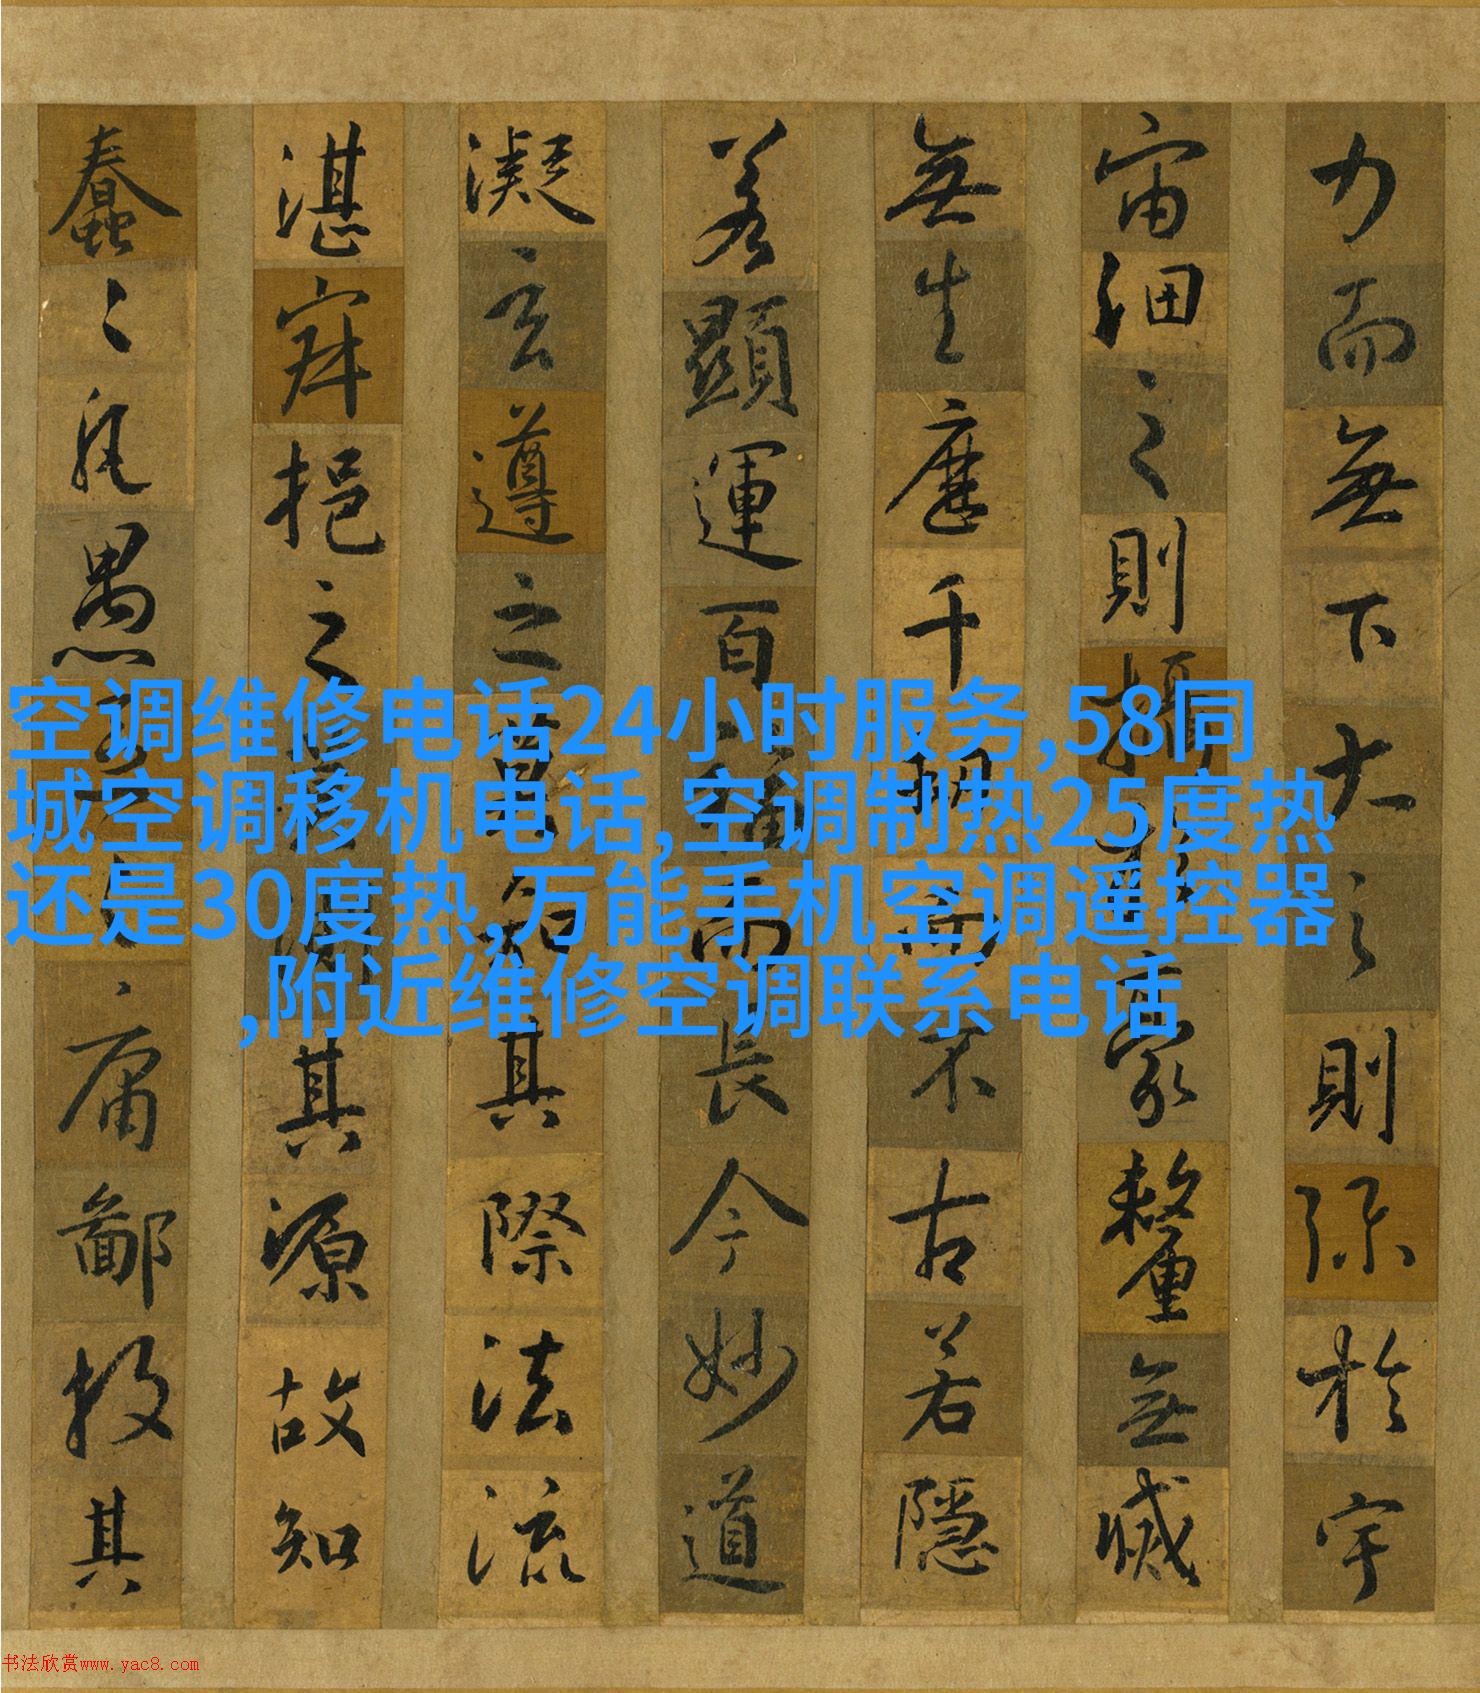 力而無下大之則弥於宇
宙細之則攝於豪釐無滅
無生歷千劫而不古若隱
若顯運百福而長今妙道
凝玄遵之莫知其際法流
湛寂挹之莫測其源故知
蠢〻凡愚區〻庸鄙投其
空调维修电话24小时服务,58同
城空调移机电话,空调制热25度热
还是30度热,万能手机空调遥控器
,附近维修空调联系电话
书法欣赏www.yac8.com